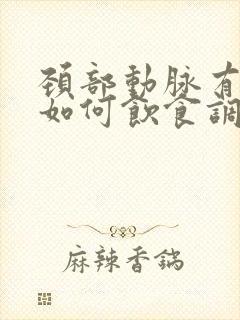 頚部動脉有
如何飲食調
麻辣香鍋